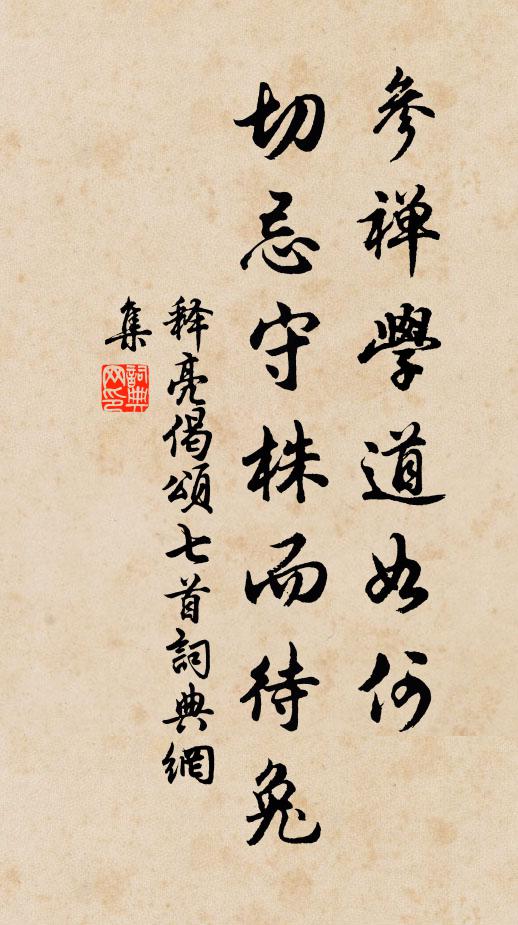 參禅學道如何
切忌守株而待兔
释亮偈頌七首詞典網
集
詞典
网印